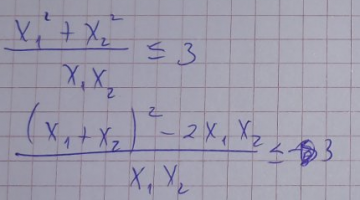 (x₁² + x₂²) / (x₁ x₂) ≤ 3
((x₁ + x₂)² - 2x₁ x₂) / (x₁ x₂) ≤ 3